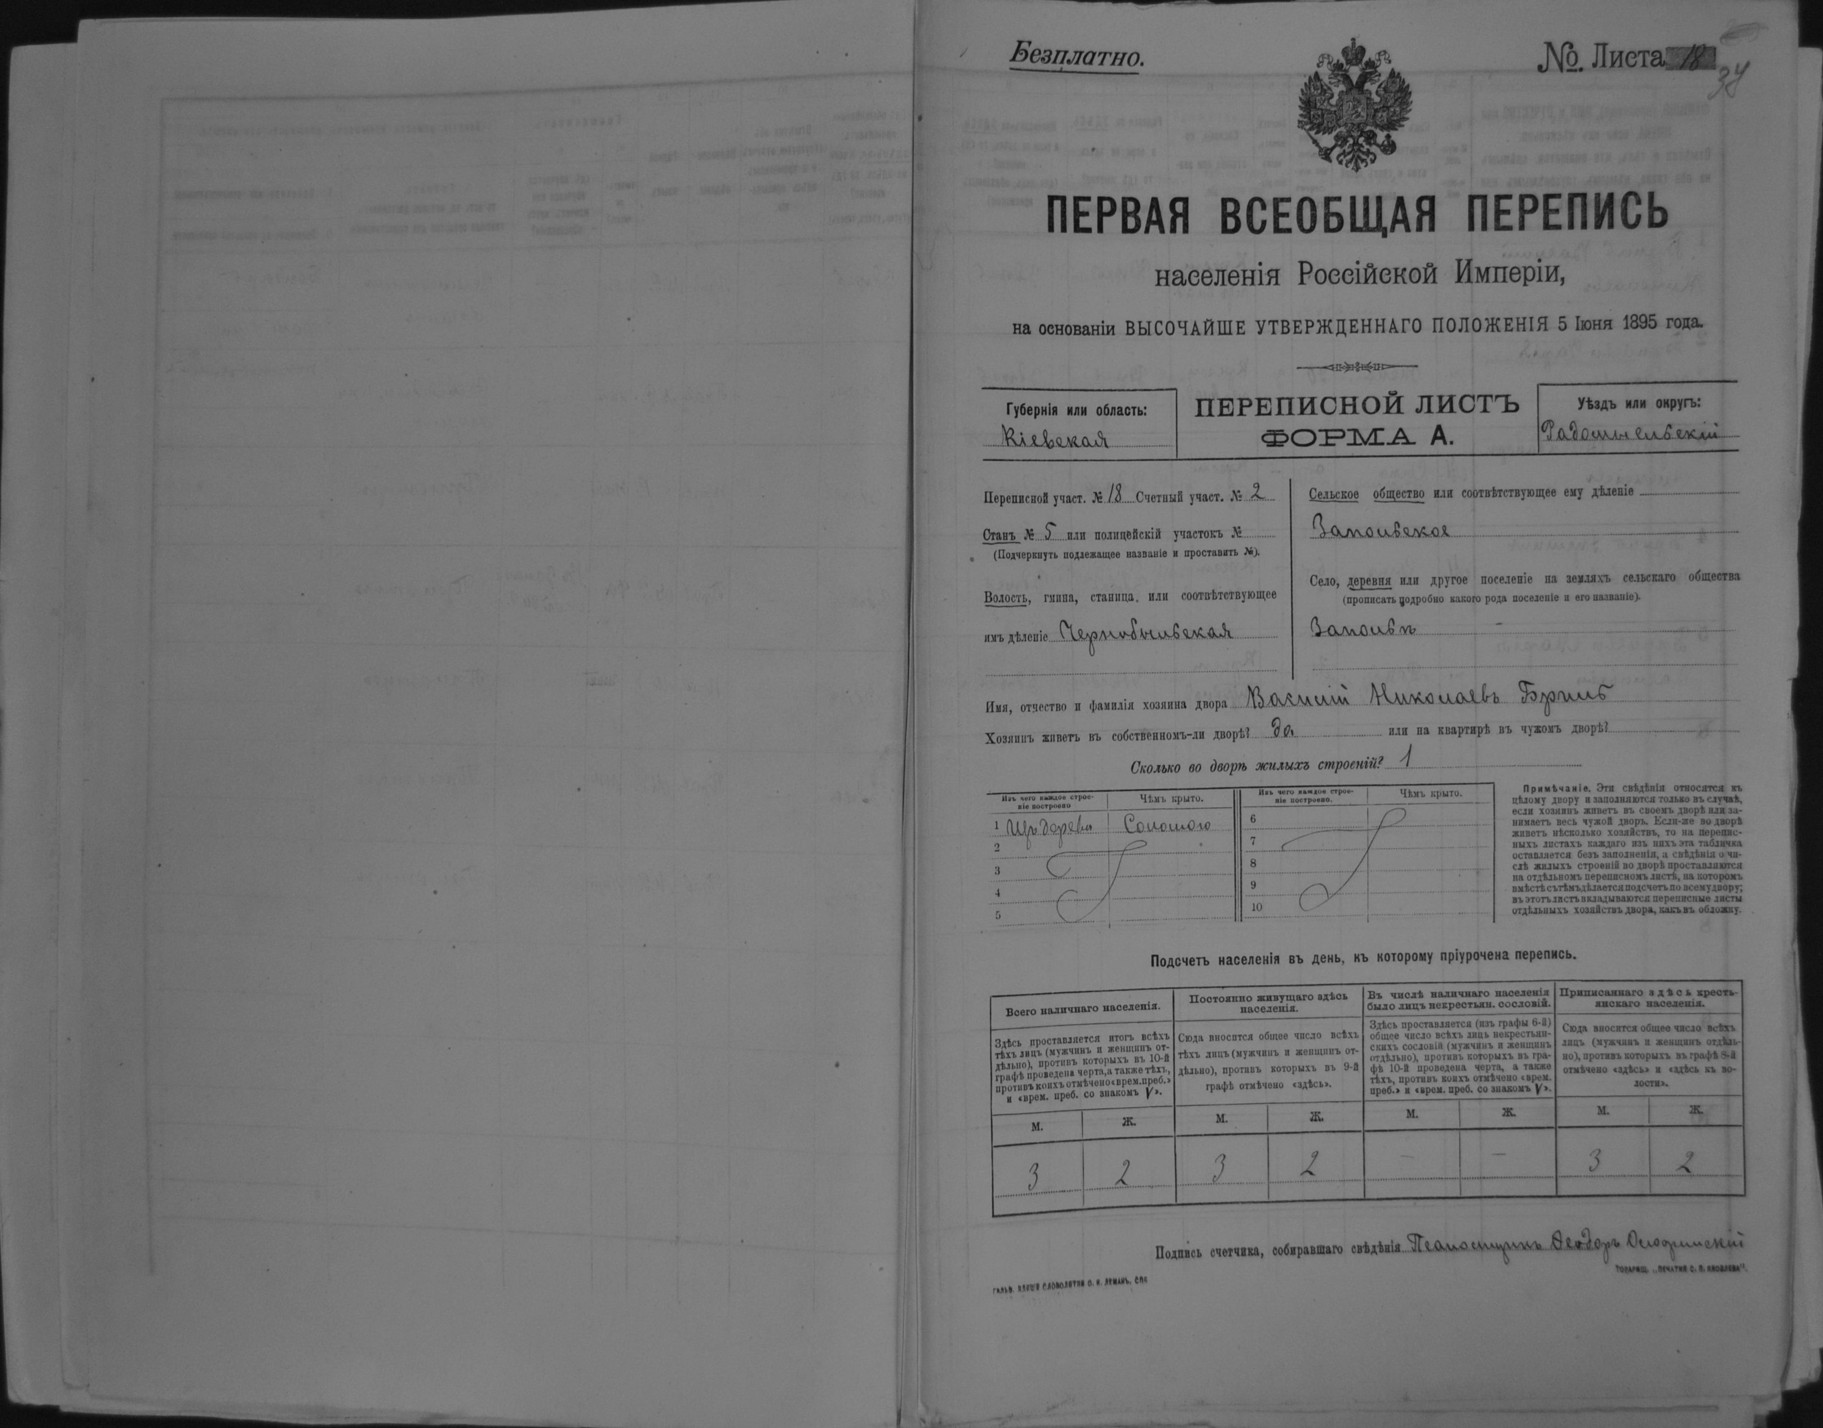 Безплатно.
№ Листа 18
34
ПЕРВАЯ ВСЕОБЩАЯ ПЕРЕПИСЬ
населенія Россійской Имперіи,
на основаніи ВЫСОЧАЙШЕ УТВЕРЖДЕННАГО ПОЛОЖЕНІЯ 5 Іюня 1895 года.
Губернія или область:
Кіевская
ПЕРЕПИСНОЙ ЛИСТЪ
ФОРМА А.
Уѣздъ или округъ:
Радомысльскій
Переписной участ. № 18 Счетный участ. № 2
Станъ № 5 или полицейскій участокъ №
(Подчеркнуть подлежащее названіе и проставить №).
Волость, гмина, станица, или соотвѣтствующее
имъ дѣленіе Чернобыльская
Сельское общество или соотвѣтствующее ему дѣленіе
Запольское
Село, деревня или другое поселеніе на земляхъ сельскаго общества
(прописать подробно какого рода поселеніе и его названіе).
Заполье
Имя, отчество и фамилія хозяина двора Василій Николаевъ
Хозяинъ живетъ въ собственномъ-ли дворѣ? да или на квартирѣ въ чужомъ дворѣ?
Сколько во дворѣ жилыхъ строеній? 1
Изъ чего каждое строе-
ніе построено
Чѣмъ крыто.
1 Изъ дерева Соломою
2
3
4
5
Изъ чего каждое строе-
ніе построено.
Чѣмъ крыто.
6
7
8
9
10
Примѣчаніе. Эти свѣдѣнія относятся къ
цѣлому двору и заполняются только въ случаѣ,
если хозяинъ живетъ въ своемъ дворѣ или за-
нимаетъ весь чужой дворъ. Если-же во дворѣ
живетъ нѣсколько хозяйствъ, то на перепис-
ныхъ листахъ каждаго изъ нихъ эта табличка
оставляется безъ заполненія, а свѣдѣнія о чи-
слѣ жилыхъ строеній во дворѣ проставляются
на отдѣльномъ переписномъ листѣ, на которомъ
вмѣстѣ съ тѣмъ дѣлается подсчетъ по всему двору;
въ этотъ листъ вкладываются переписные листы
отдѣльныхъ хозяйствъ двора, какъ въ обложку.
Подсчетъ населенія въ день, къ которому пріурочена перепись.
Всего наличнаго населенія.
Здѣсь проставляется итогъ всѣхъ
тѣхъ лицъ (мужчинъ и женщинъ от-
дѣльно), противъ которыхъ въ 10-й
графѣ проведена черта, а также тѣхъ,
противъ коихъ отмѣчено «врем. преб.»
и «врем. преб. со знакомъ V».
М. Ж.
3 2
Постоянно живущаго здѣсь
населенія.
Сюда вносится общее число всѣхъ
тѣхъ лицъ (мужчинъ и женщинъ от-
дѣльно), противъ которыхъ въ 9-й
графѣ отмѣчено «здѣсь».
М. Ж.
3 2
Въ числѣ наличнаго населенія
было лицъ некрестьян. сословій.
Здѣсь проставляется (изъ графы 6-й)
общее число всѣхъ лицъ некрестьян-
скихъ сословій (мужчинъ и женщинъ
отдѣльно), противъ которыхъ въ гра-
фѣ 10-й проведена черта, а также
тѣхъ, противъ коихъ отмѣчено «врем.
преб.» и «врем. преб. со знакомъ V».
М. Ж.
— —
Приписаннаго здѣсь кресть-
янскаго населенія.
Сюда вносится общее число всѣхъ
лицъ (мужчинъ и женщинъ отдѣль-
но), противъ которыхъ въ графѣ 8-й
отмѣчено «здѣсь» и «здѣсь къ во-
лости».
М. Ж.
3 2
Подпись счетчика, собиравшаго свѣдѣнія Псаломщикъ Ѳеодоръ
ТОВАРИЩ. „ПЕЧАТНЯ С. П. ЯКОВЛЕВА".